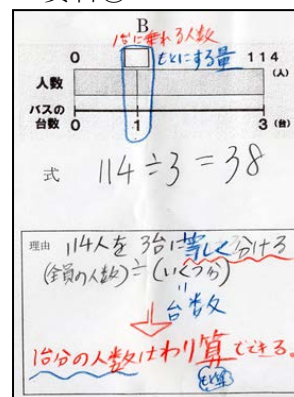 B
1台に乗れる人数
もとにする量
0 114
(人)
人数
バスの
台数 0 1 3 (台)
式 114÷3=38
理由 114人を3台に等しく分ける
(全員の人数)÷(いくつ分)
〃
台数
1台分の人数はわり算でできる。